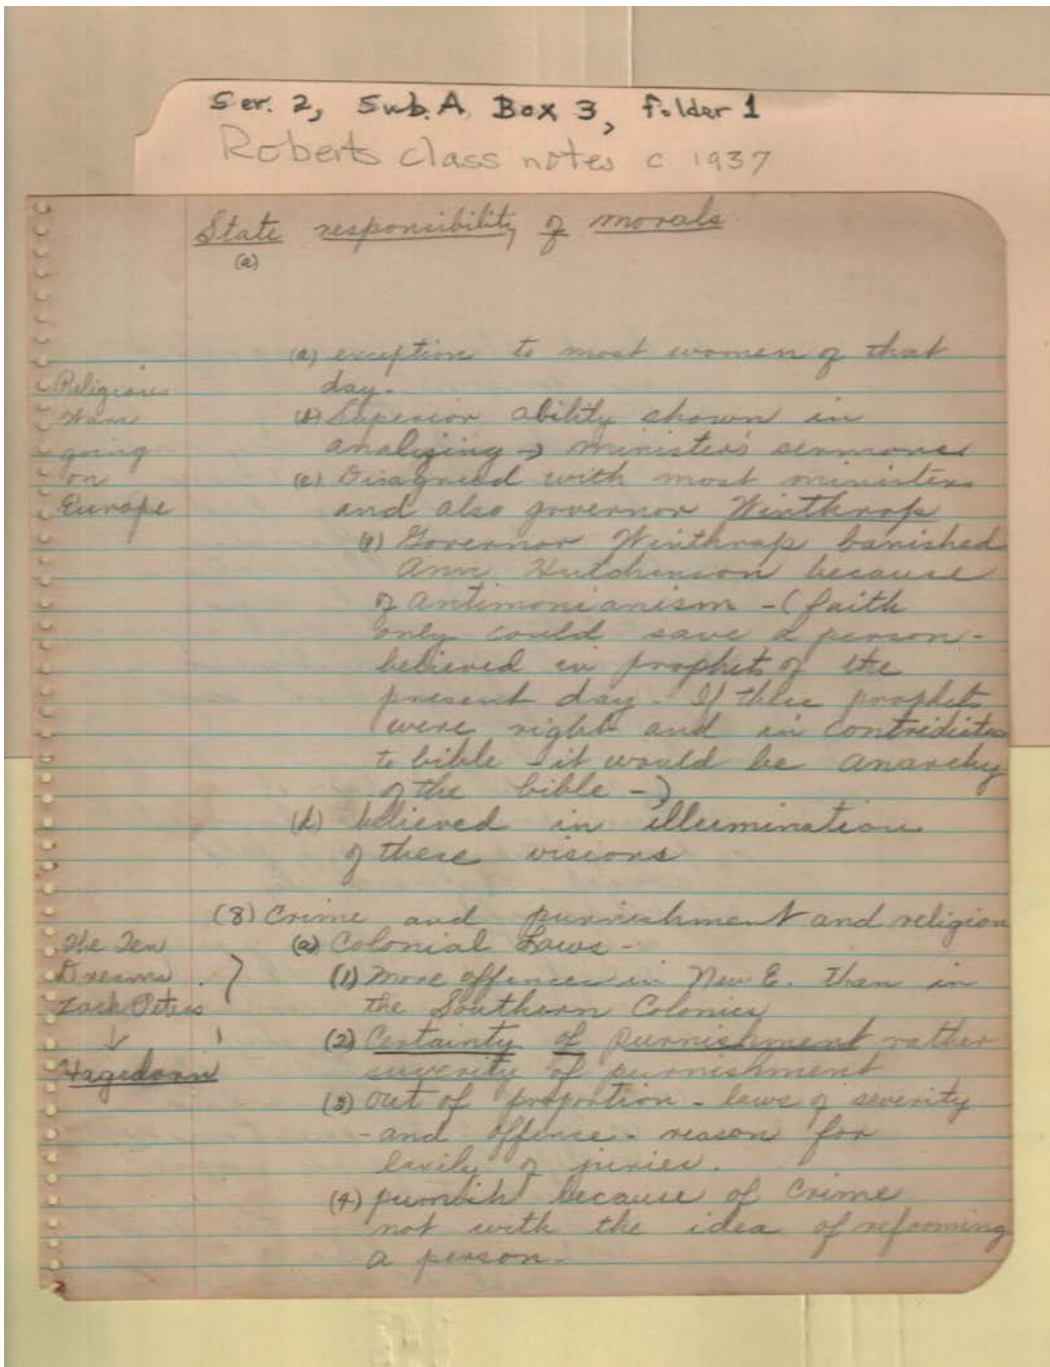 Ser. 2, Sub. A Box 3, Folder 1
Roberts class notes c 1937
State responsibility of morals
(a)
(a) exception to most women of that
day.
(b) Superior ability shown in
analizing → minister's sermons
(c) Disagreed with most ministers
and also governor Winthrop
(1) Governor Winthrop banished
Ann Hutchinson because
of antimonianism - (faith
only could save a person -
believed in prophets of the
present day. If these prophets
were right and in
to bible - it would be anarchy
of the bible -)
(d) believed in illumination
of these visions
Religious
Wars
going
on
Europe
(8) Crime and purnishment and religion
(a) Colonial Laws -
(1) More offences in New E. than in
the Southern Colonies
(2) Certainty of purnishment rather
severity of purnishment
(3) out of proportion - laws of severity
- and offence - reason for
of juries.
(4) punish because of crime
not with the idea of reforming
a person -
The Ten
Dreams
Zach Peters
↓
Hagedorn